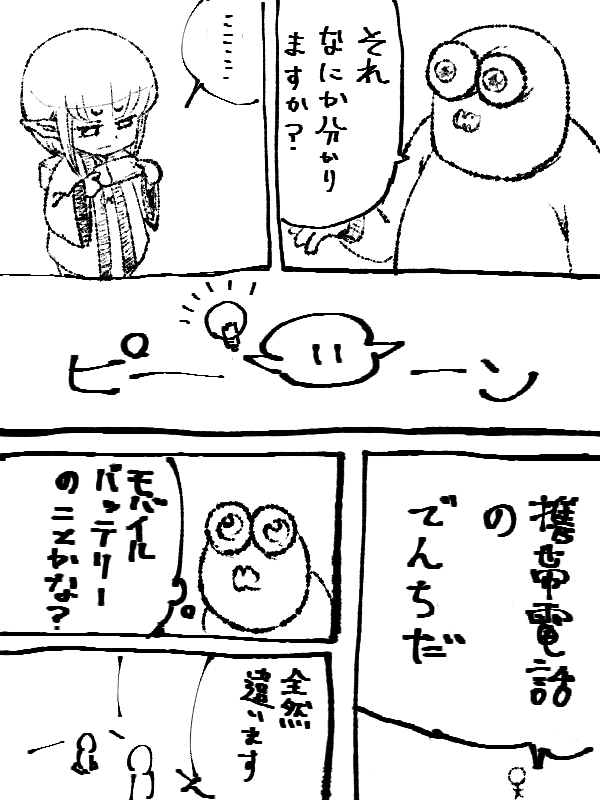 それ
なにか分かり
ますか？
…………
ピーーン
！！
携帯電話
の
でんちだ
モバイル
バッテリー
のことかな？
全然
違います